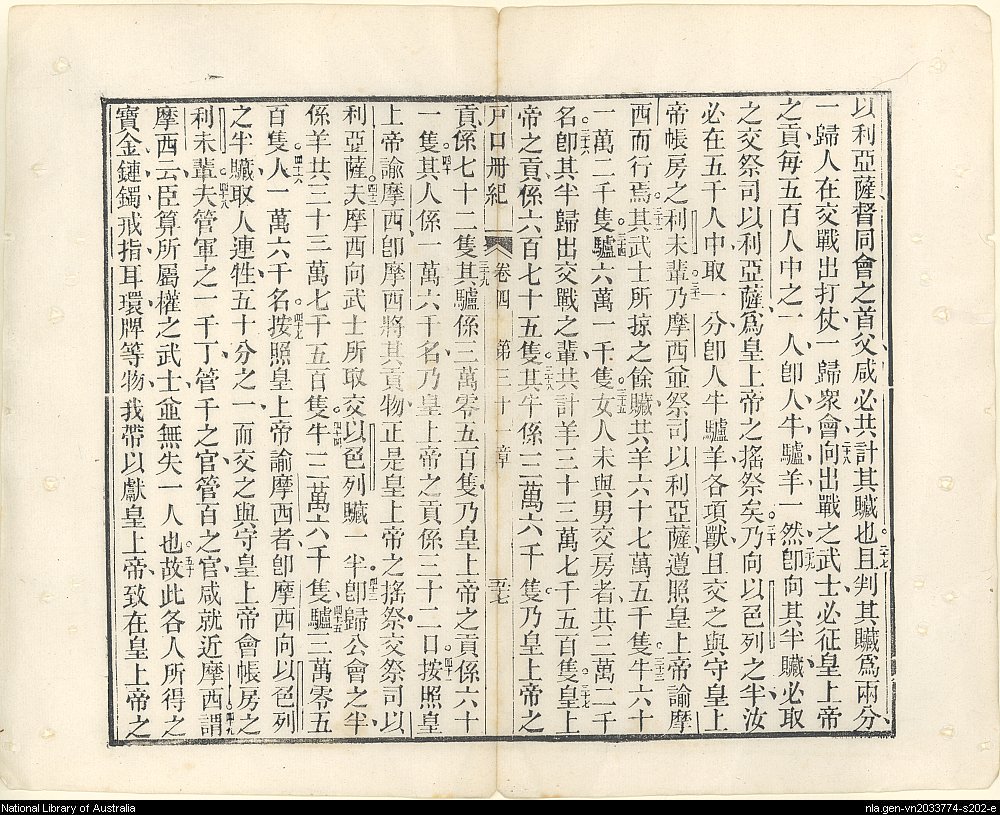 以利亞薩督同會之首父咸必共計其贓也二十七且判其贓爲兩分
一歸人在交戰出打仗一歸衆會二十八向出戰之武士必征皇上帝
之貢每五百人中之一人卽人牛驢羊一然二十九卽向其半贓必取
之交祭司以利亞薩爲皇上帝之搖祭矣三十乃向以色列之半汝
必在五千人中取一分卽人牛驢羊各項獸且交之與守皇上
帝帳房之利未輩三十一乃摩西並祭司以利亞薩遵照皇上帝諭摩
西而行焉三十二其武士所掠之餘贓共羊六十七萬五千隻三十三牛六十
一萬二千隻三十四驢六萬一千隻三十五女人未與男交房者其三萬二千
名三十六卽其半歸出交戰之輩共計羊三十三萬七千五百隻三十七皇上
帝之貢係六百七十五隻三十八其牛係三萬六千隻乃皇上帝之
戶口冊紀 卷四 第三十一章 五七
貢係七十二隻三十九其驢係三萬零五百隻乃皇上帝之貢係六十
一隻四十其人係一萬六千名乃皇上帝之貢係三十二口四十一按照皇
上帝諭摩西卽摩西將其貢物正是皇上帝之搖祭交祭司以
利亞薩四十二夫摩西向武士所取交以色列贓一半四十三卽歸公會之半
係羊共三十三萬七千五百隻四十四牛三萬六千隻四十五驢三萬零五
百隻四十六人一萬六千名四十七按照皇上帝諭摩西者卽摩西向以色列
之半贓取人連牲五十分之一而交之與守皇上帝會帳房之
利未輩四十八夫管軍之一千丁管千之官管百之官咸就近摩西四十九謂
摩西云臣算所屬權之武士並無失一人也五十故此各人所得之
寶金鏈鐲戒指耳環牌等物我帶以獻皇上帝致在皇上帝之
National Library of Australia
nla.gen-vn2033774-s202-e